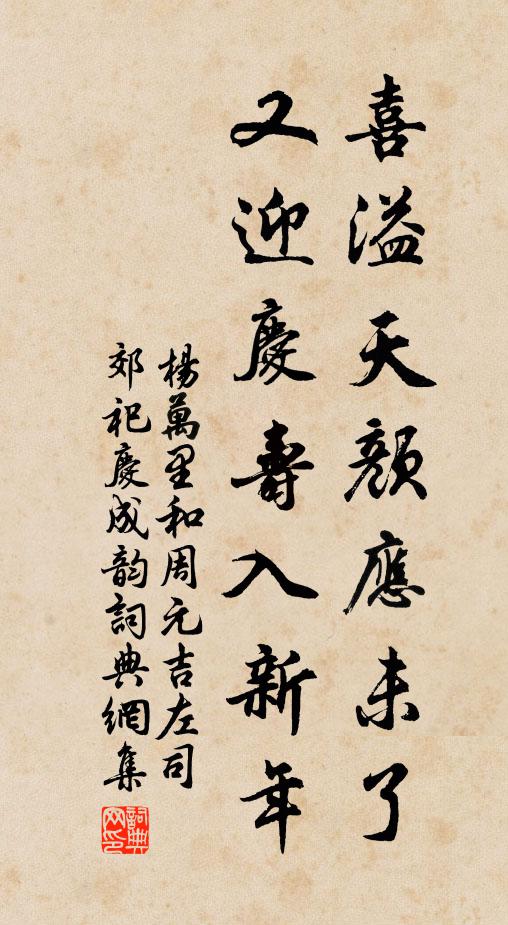 喜溢天顏應未了
又迎慶壽入新年
楊萬里和周元吉左司
郊祀慶成韵詞典網集
詞典网印